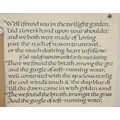 Well I found you in the twilight garden,
Laid a lover's hand upon your shoulder,
and we both were made aware of loving
past the reach of reason to unravel,
or the much desiring heart to follow.
we found the breath amongst the grass and
the gurgle of soft-running water;
well contented with the spacious starlight,
the cool wind's touch & the deep blue distance
till the dawn came in with golden sandals.
We found the breath amongst the grass
And the gurgle of soft-running water;